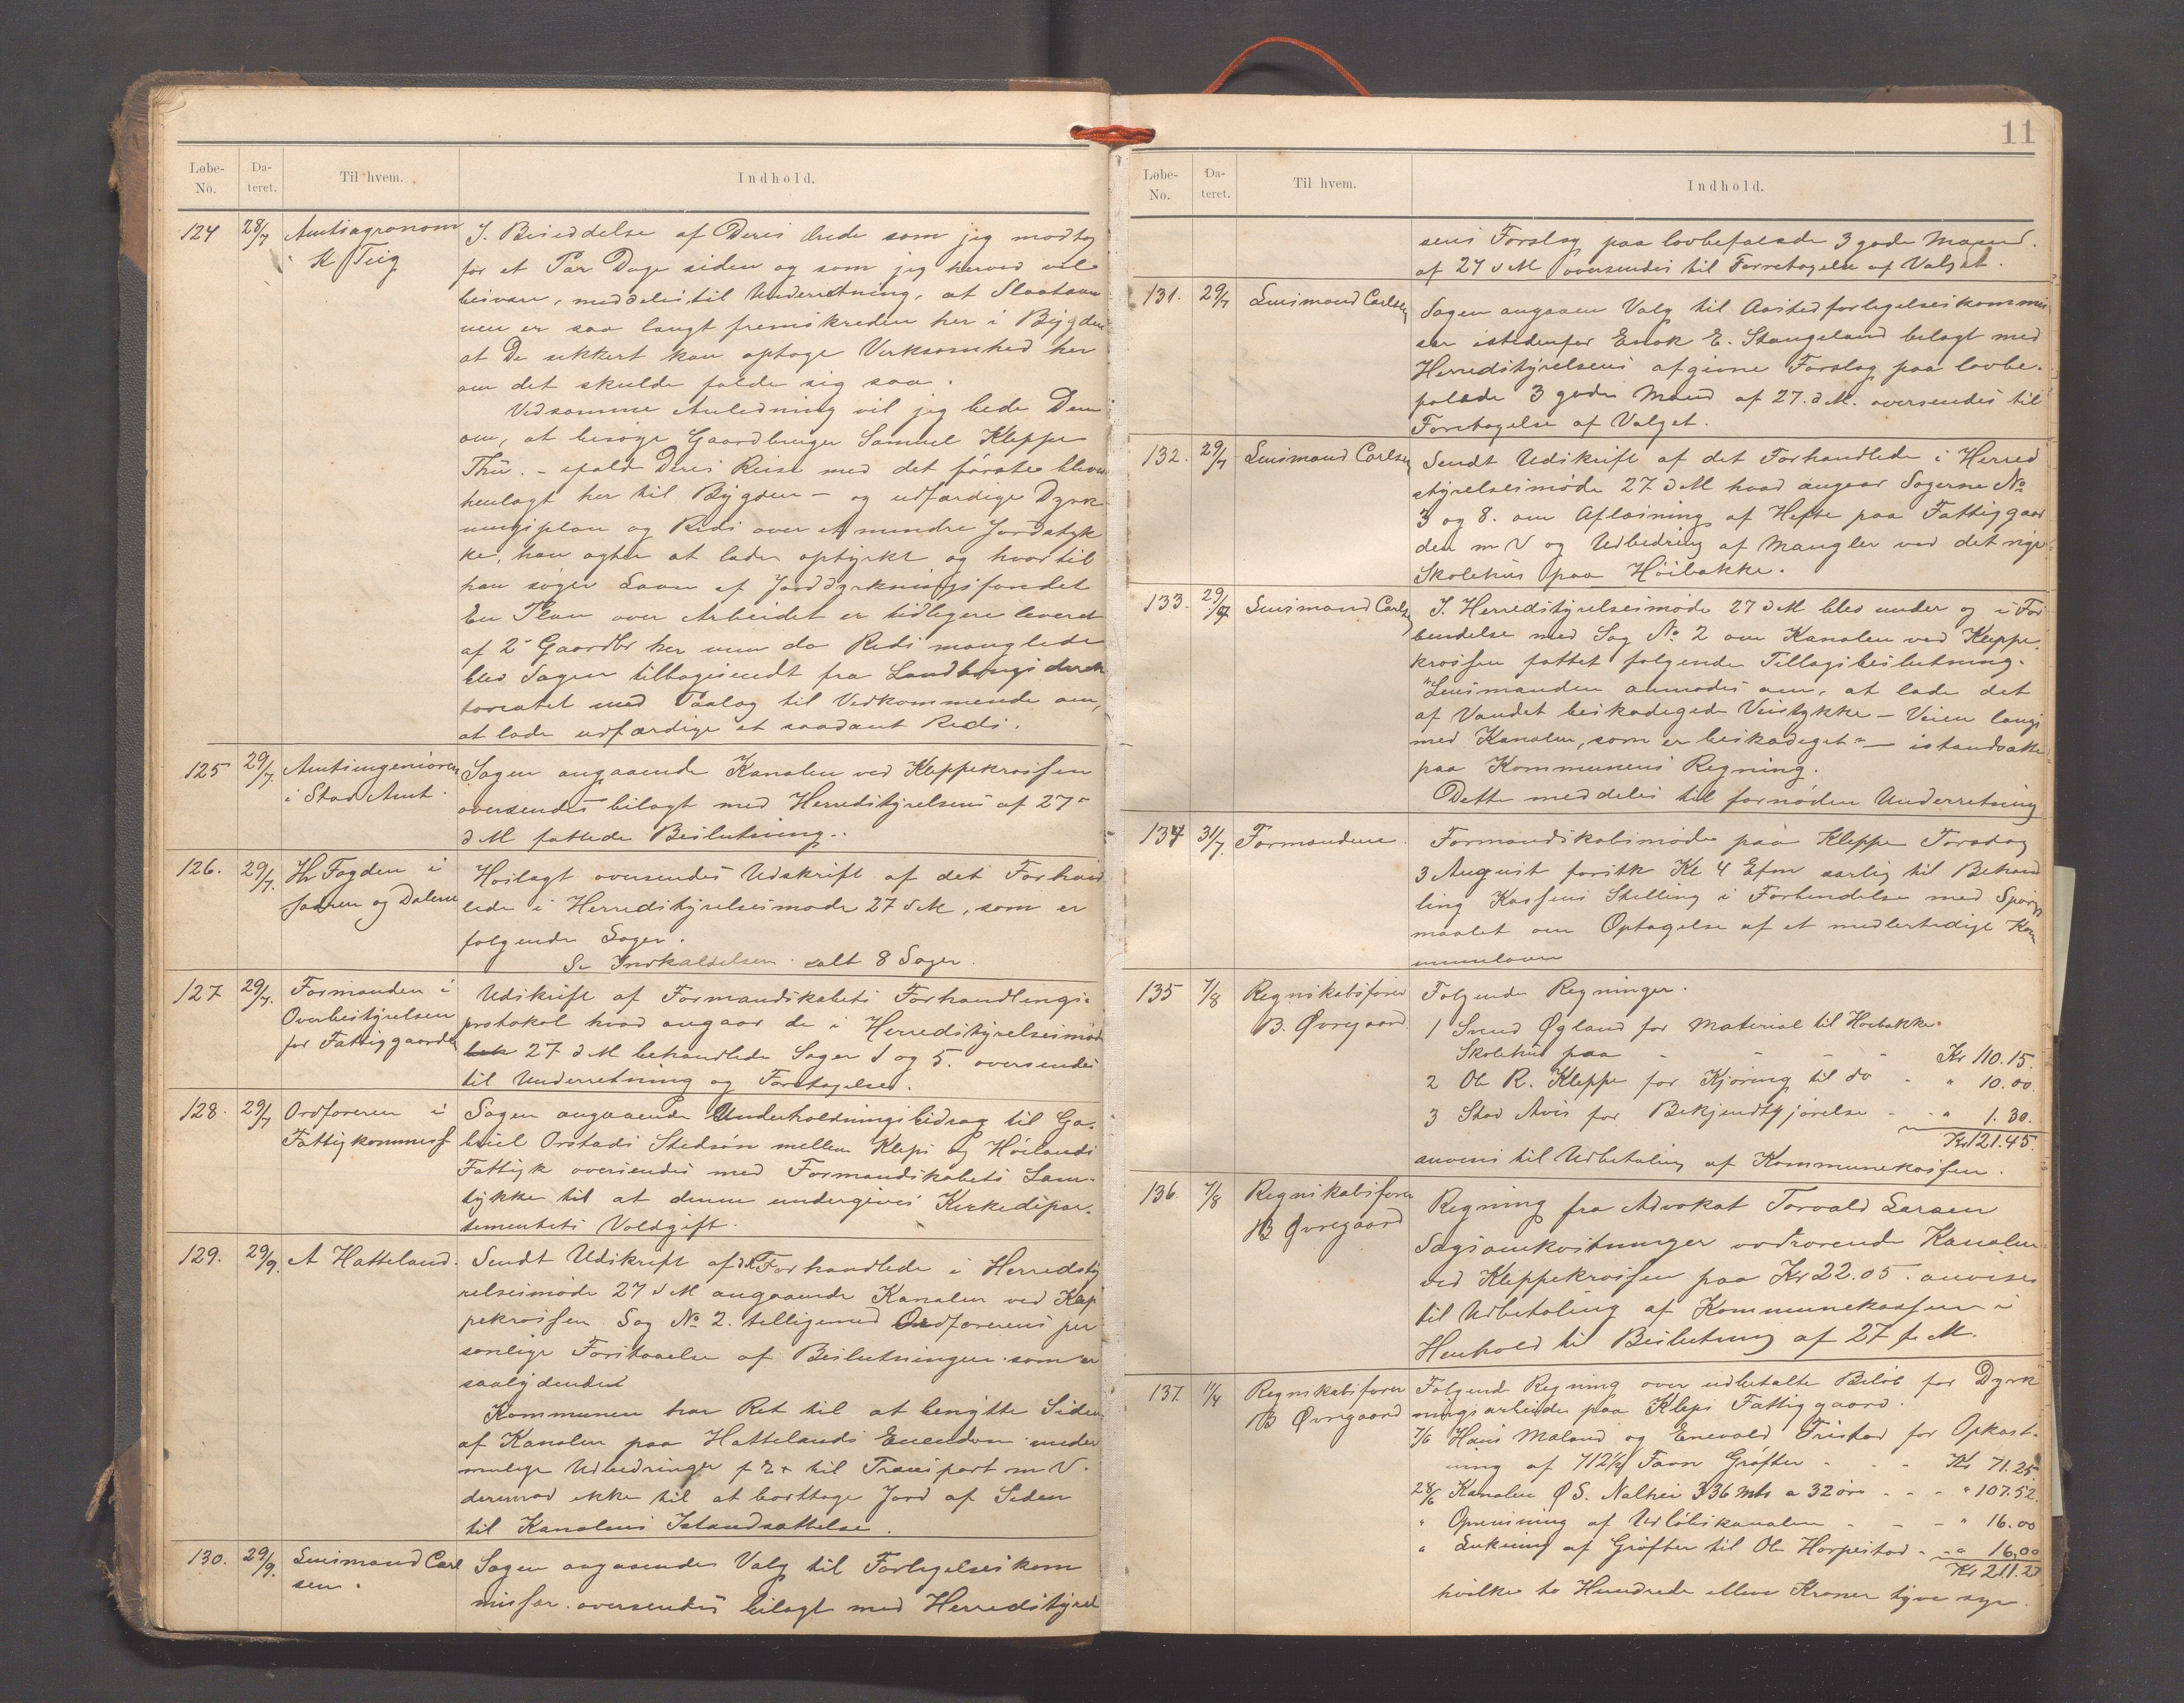 11
Løbe-No. Da-teret. Til hvem. Indhold.
124 28/7 Amtsagronom K Teig
I. Besiddelse af Deres brede som jeg modtog
for et Par Dage siden og som jeg herved vil
besvare, meddeles til Underretning, at Slaataan
nen er saa langt fremskreden her i Bygden
at De sikkert kan optage Virksomhed her
om det skulde falde sig saa.
Ved samme Anledning vil jeg bede Dem
om, at besøge Gaardbruger Samuel Kleppe
Thu. – ifald Deres Reise med det første blev
henlagt her til Bygden – og udfærdige Dyrk
ningsplan og Rids over et mindre Jordstyk
ke, han agter at lade opdyrke og hvortil
han søger Laan af Jorddyrkningsfondet
En Plan over Arbeidet er tidligere leveret
af 2 Gaardbr her men da Rids manglede
blev Sagen tilbagesendt fra Landbrugsdirek
toratet med Paalag til Vedkommende om,
at lade udfærdige et saadant Rids.
125 29/7 Amtsingeniøren i Stav Amt.
Sagen angaaende Kanalen ved Kleppekrossen
oversendes bilagt med Herredstyrelsens af 27
d M fattede Beslutning.
126. 29/7. Hr Fogden i Jæderen og Dalerne
Hoslagt oversendes Udskrift af det Forhand
lede i Herredstyrelsesmøde 27 d M, som er
følgende Sager.
Se Indkaldelsen. salt 8 Sager.
127 29/7. Formanden i Overbestyrelsen for Fattiggaarden
Udskrift af Formandskabets Forhandlings-
protokol hvad angaar de i Herredstyrelsesmøde
27 d M behandlede Sager 1 og 5. oversendes
til Underretning og Foretagelse.
128. 29/7 Ordføreren i Fattigkommiss
Sagen angaaende Underholdningsbidrag til Ga-
briel Orstads Stedsøn mellem Kleps og Høilands
Fattigk oversendes med Formandskabets Sam-
tykke til at denne undergives Kirkedepar-
tementets Voldgift.
129. 29/9. A Hatteland.
Sendt Udskrift af det Forhandlede i Herredsty
relsesmøde 27 d M angaaende Kanalen ved Klep
pekrossen Sag No 2. tilligemed Ordførerens per
sonlige Forstaaelse af Beslutningen som er
saalydende:
Kommunen har Ret til at benytte Siden
af Kanalen paa Hattelands Eiendom under
mulige Udbedringer til Transport m V.
derimod ikke til at borttage Jord af Siden
til Kanalens Istandsættelse.
130. 29/9. Lensmand Carl sen.
Sagen angaaende Valg til Forligelseskom
missær. oversendes bilagt med Herredstyrel
Løbe-No. Da-teret. Til hvem. Indhold.
sens Forslag paa lovbefalede 3 gode Mænd.
af 27 d M oversendes til Foretagelse af Valget.
131. 29/7 Lensmand Carlsen
Sagen angaaen Valg til Aastedforligelseskommis
sær istedenfor Enok E. Stangeland bilagt med
Herredstyrelsens afgivne Forslag paa lovbe-
falede 3 gode Mænd af 27. d M. oversendes til
Foretagelse af Valget.
132. 29/7 Lensmand Carlsen
Sendt Udskrift af det Forhandlede i Herred
styrelsesmøde 27 d M hvad angaar Sagerne No
3 og 8. om Aflæsning af Hefte paa Fattiggaar
den m V og Udbedring af Mangler ved det nye
Skolehus paa Höibakke.
133. 29/7 Lensmand Carlsen
I. Herredstyrelsesmøde 27 d M blev under og i For
bendelse med Sag No. 2 om Kanalen ved Kleppe-
krossen fattet følgende Tillægsbeslutning.
"Lensmanden anmodes om, at lade det
af Vandet beskadigede Veistykke – Veien langs
med Kanalen, som er beskadeget" – istandsætte
paa Kommunens Regning.
Dette meddeles til fornøden Underretning
134 31/7. Formændene.
Formandskabsmøde paa Kleppe Torsdag
3 August førstk Kl 4 Efm særlig til Behand
ling Kassens Stilling i Forbindelse med Spørgs
maalet om Optagelse af et medlertidigt Kom
munelaan
135 7/8 Regnskabsfører B. Øvregaard.
Følgende Regninger.
1 Svend Øgland for Material til Hoibakke
Skolehus paa - - - - Kr 110.15.
2 Ole R. Kleppe for Kjøring til do - " 10.00.
3 Stav Avis for Bekjendtgjørelse - - " 1.30.
Kr 121.45.
anvises til Udbetaling af Kommunekassen.
136. 7/8 Regnskabsfører B Øvregaard
Regning fra Advokat Torvald Larsen
Sagsomkostninger vedrørende Kanalen
ved Kleppekrossen paa Kr 22.05. anvises
til Udbetaling af Kommunekassen i
Henhold til Beslutning af 27 f. M.
137. Regnskabsfører B Øvregaard
Følgende Regning over udbetalte Beløb for Dyrk
ningsarbeide paa Kleps Fattiggaard.
7/6 Hans Maland og Enevald Tristad for Opkast-
ning af 712½ Favn Grøfter - - - Kr 71.25.
28/6 Kanalen Ø S. Nalhei 336 Mtr a 32 øre - - - " 107.52.
" Oprensning af Udløbskanalen - - - " 16.00
" Lukning af Grøfter til Ole Horpestad - - " 16.00
Kr 211.27
hvilke to Hundrede elleve Kroner tyve syv.